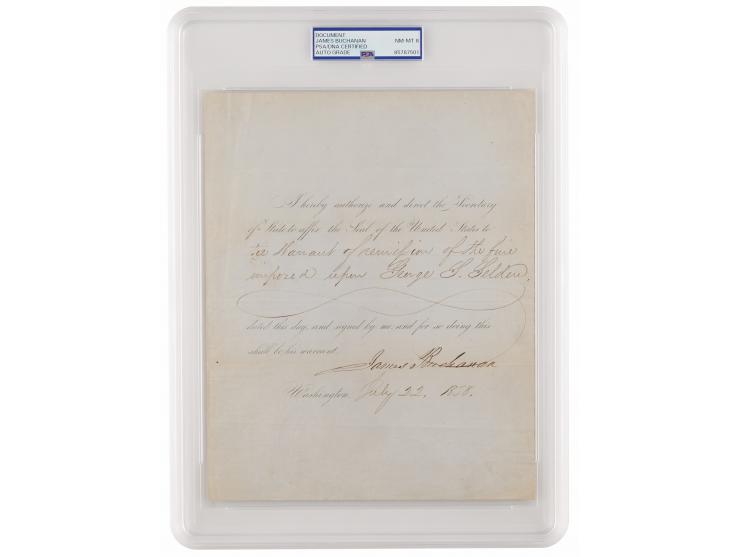 DOCUMENT
JAMES BUCHANAN NM-MT 8
PSA/DNA CERTIFIED
AUTO GRADE PSA 85787501
I hereby authorize and direct the Secretary
of State to affix the Seal of the United States to
the Warrant of remission of the fine
imposed upon George S. Gelden,
dated this day, and signed by me, and for so doing this
shall be his warrant.
James Buchanan
Washington, July 22, 1858.